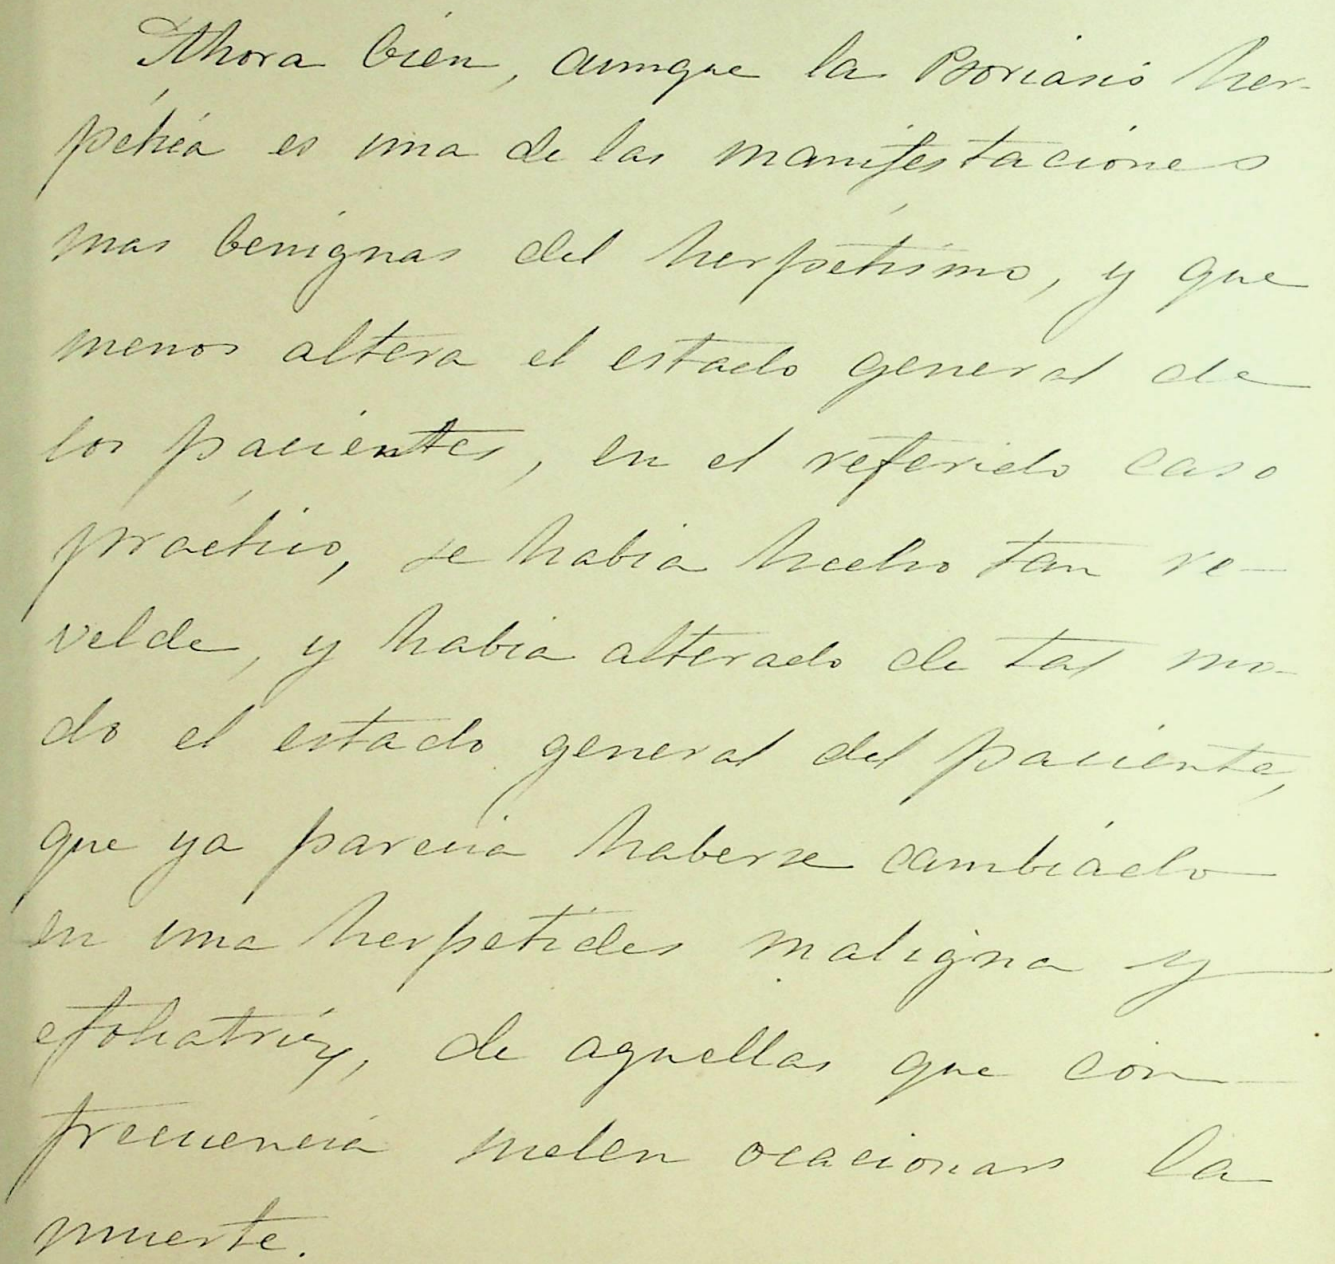 Ahora bien, aunque la Psoriasis her-
pética es una de las manifestaciones
mas benignas del herpétismo, y que
menos altera el estado general de
los pacientes, en el referido caso
práctico, se habia hecho tan re-
velde, y habia alterado de tal mo-
do el estado general del paciente,
que ya parecia haberse cambiado
en una herpetides maligna y
efoliatriz, de aquellas que con
frecuencia suelen ocacionar la
muerte.